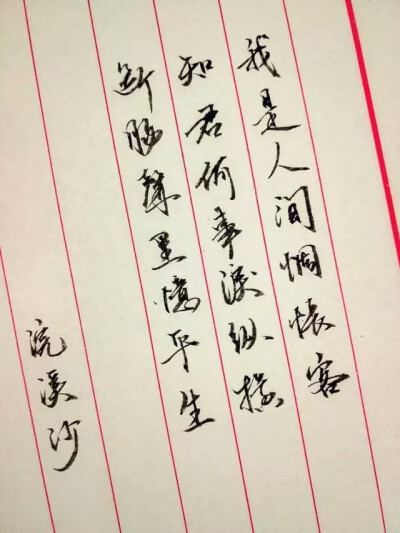 我是人间惆怅客
知君何事泪纵横
断肠声里忆平生
浣溪沙